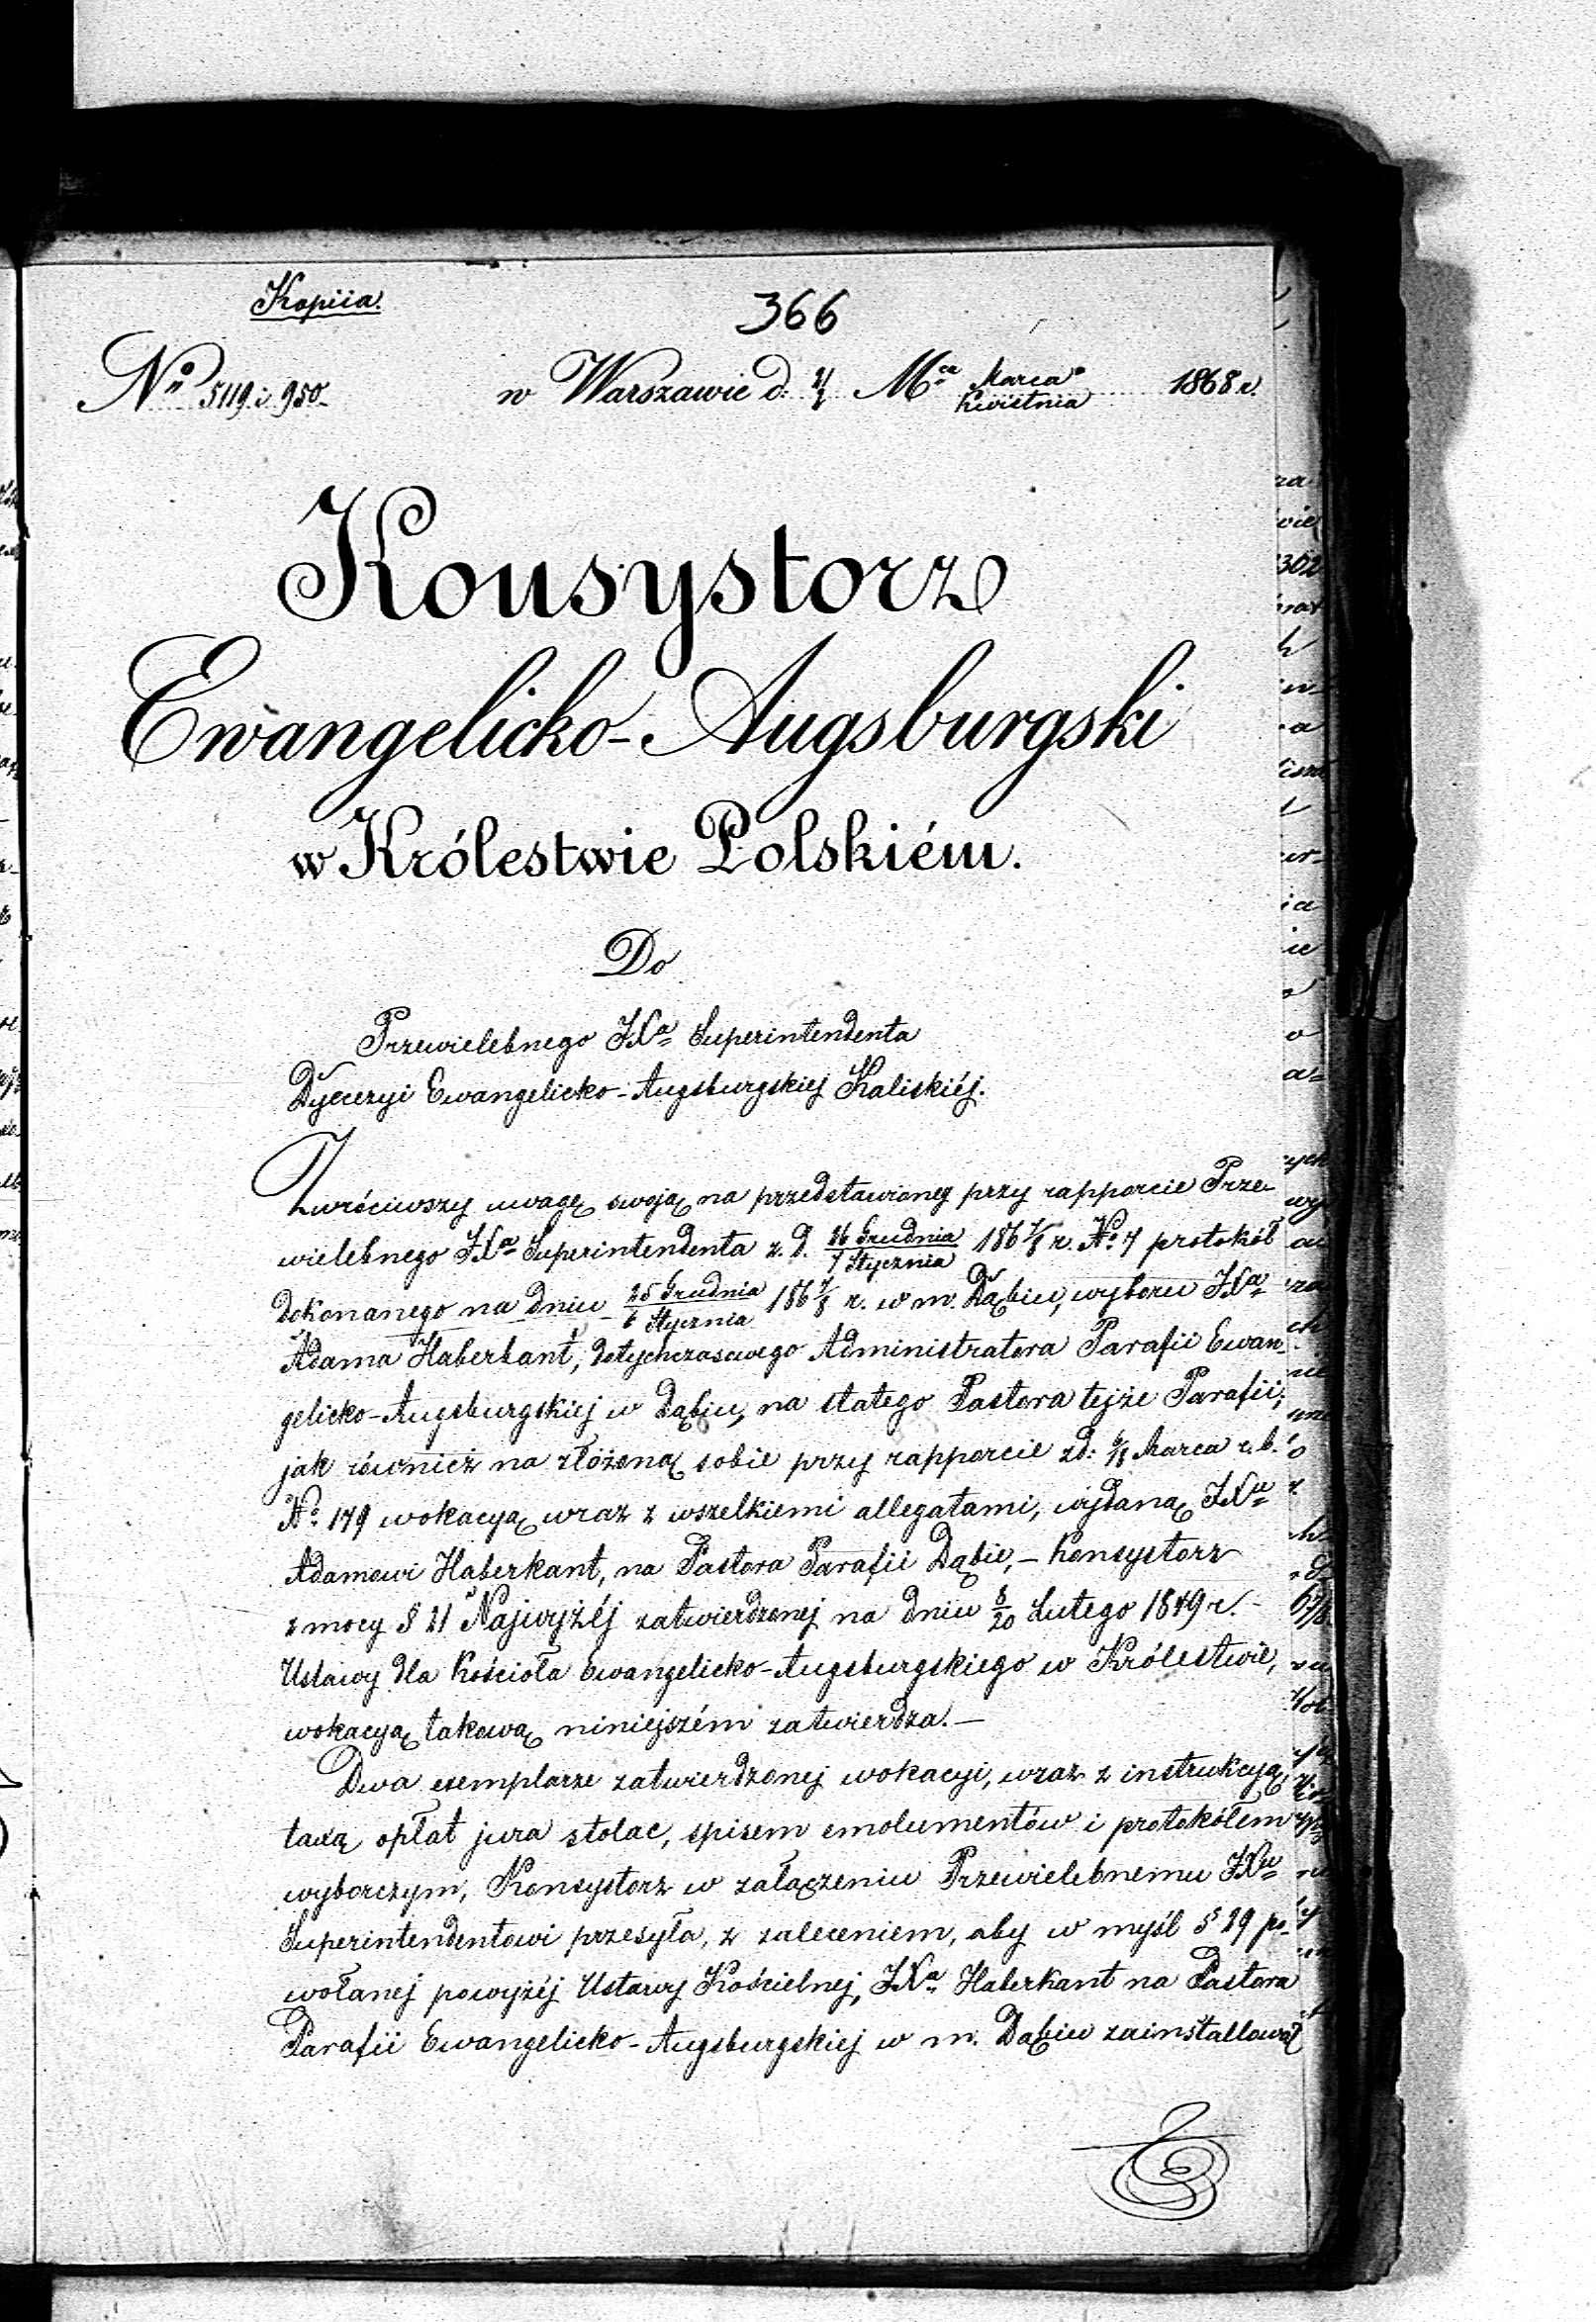 Kopiia.
366
No 5119 i 950.
w Warszawie d. Mca Marca/Kwietnia 1868 r.
Konsystorz
Ewangelicko-Augsburgski
w Królestwie Polskiém.
Do
Przewielebnego JXa Superintendenta
Dyecezyi Ewangelicko-Augsburgskiej Kaliskiéj.
Zwróciwszy uwagę swoją na przedstawioney przy rapporcie Prze-
wielebnego JXa Superintendenta z. d. 26 Grudnia/7 Stycznia 186 7/8 r. No 7 protokół
dokonanego na dniu 25 Grudnia/6 Stycznia 186 7/8 r. w m. Dąbiu, wyboru JXa
Adama Haberkant, dotychczasowego Administratora Parafii Ewan-
gelicko-Augsburgskiej w Dąbiu, na stałego Pastora tejże Parafii;
jak również na złożoną sobie przy rapporcie z d: Marca r. b.
No 179 wokacyą wraz z wszelkiemi allegatami, wydaną JXu
Adamowi Haberkant, na Pastora Parafii Dąbie, – Konsystorz
z mocy § 21 Najwyżéj zatwierdzonej na dniu 8/20 Lutego 1849 r. –
Ustawy dla Kościoła Ewangelicko-Augsburgskiego w Królestwie,
wokacyą takową niniejszém zatwierdza. –
Dwa exemplarze zatwierdzonej wokacyi, wraz z instrukcyą,
taxą opłat jura stolae, spisem emolumentów i protokółem
wyborczym, Konsystorz w załączeniu Przewielebnemu JXu
Superintendentowi przesyła, z zaleceniem, aby w myśl § 29 po-
wołanej powyżéj Ustawy Kościelnej, JXa Haberkant na Pastora
Parafii Ewangelicko-Augsburgskiej w m. Dąbiu zainstallował